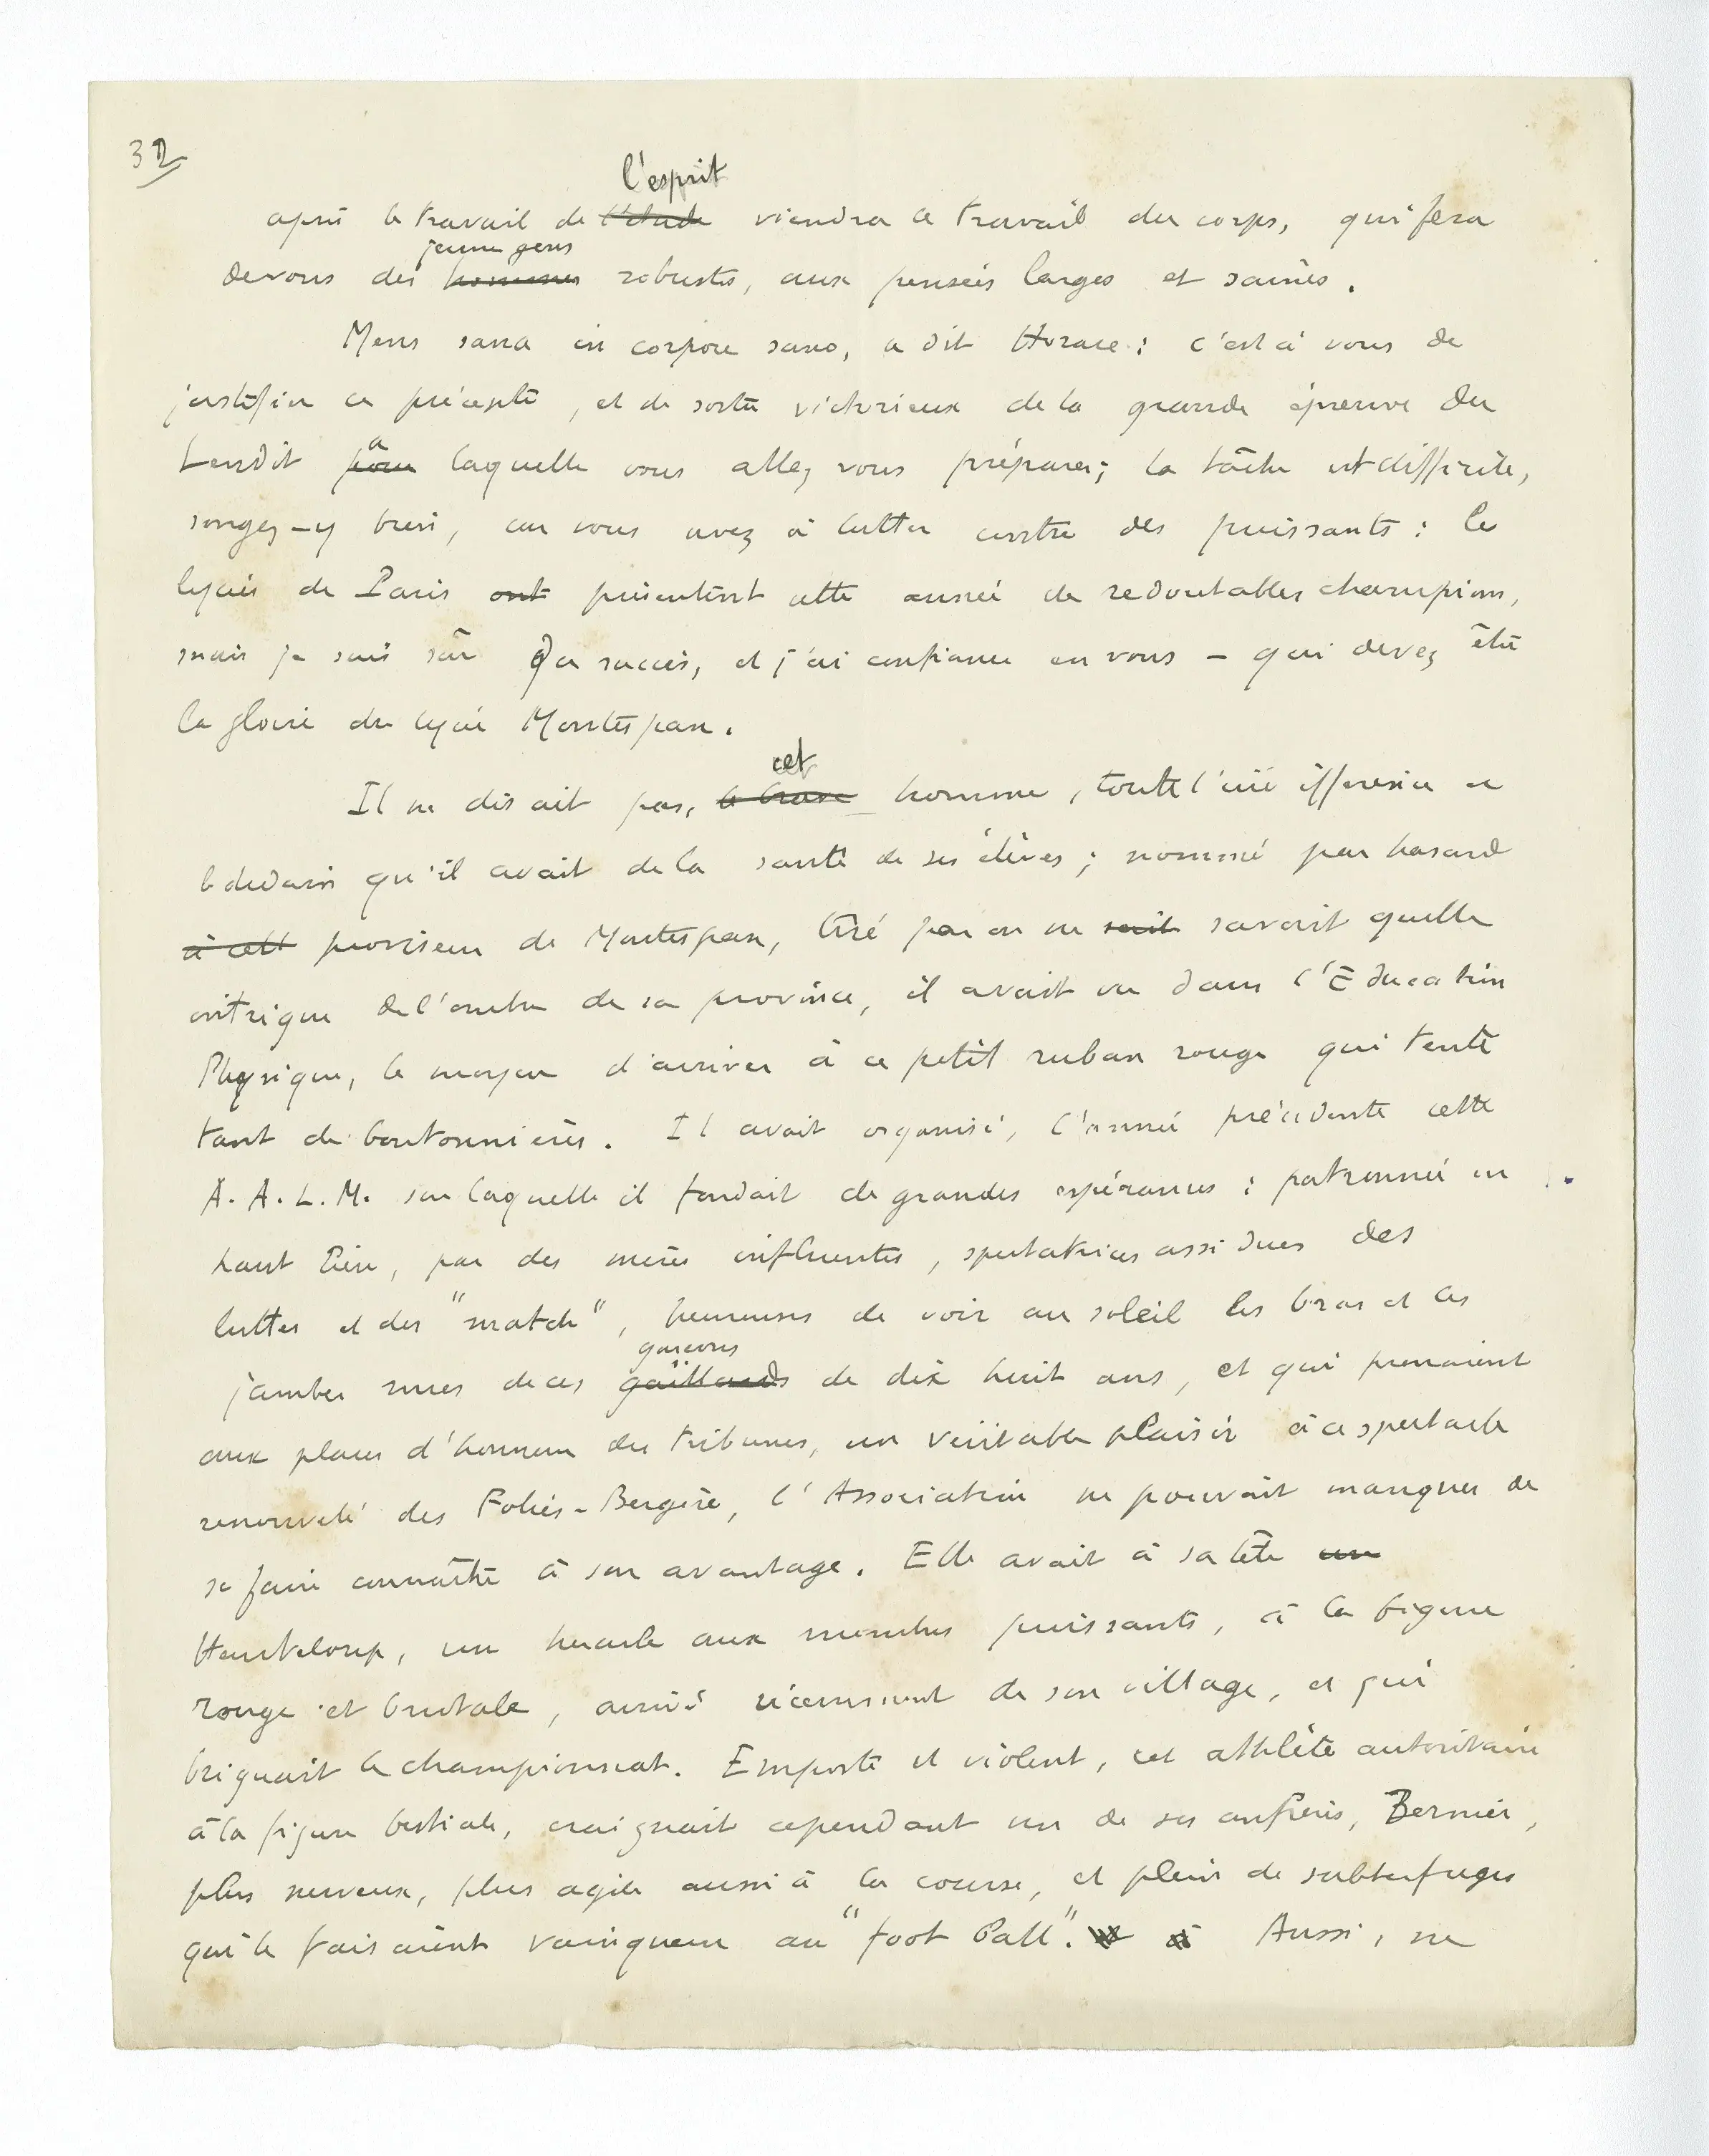 32
l'esprit
après le travail de l'étude viendra le travail du corps, qui fera
jeunes gens
de vous des hommes robustes, aux pensées larges et saines.
Mens sana in corpore sano, a dit Horace : c'est à vous de
justifier ce précepte, et de sortir victorieux de la grande épreuve du
à
Lendit pour laquelle vous allez vous préparer ; la tâche est difficile,
songez-y bien, car vous avez à lutter contre des puissants : les
lycées de Paris ont présentent cette année de redoutables champions,
mais je suis sûr du succès, et j'ai confiance en vous - qui devez être
la gloire du lycée Montespan.
cet
Il ne disait pas, le brave homme, toute l'indifférence et
le dédain qu'il avait de la santé de ses élèves ; nommé par hasard
à cett proviseur de Montespan, tiré par on ne sait savait quelle
intrigue de l'ombre de sa province, il avait vu dans l'Education
Physique, le moyen d'arriver à ce petit ruban rouge qui tente
tant de boutonnières. Il avait organisé, l'année précédente cette
A. A. L. M. sur laquelle il fondait de grandes espérances : patronnée en
haut lieu, par des mères influentes, spectatrices assidues des
luttes et des "match", heureuses de voir au soleil les bras et les
garçons
jambes nues de ces gaillards de dix huit ans, et qui prenaient
aux places d'honneur des tribunes, un véritable plaisir à ce spectacle
renouvelé des Folies-Bergère, l'Association ne pouvait manquer de
se faire connaître à son avantage. Elle avait à sa tête un
Hauteloup, un hercule aux membres puissants, à la figure
rouge et brutale, arrivé récemment de son village, et qui
briguait le championnat. Emporté et violent, cet athlète autoritaire
à la figure bestiale, craignait cependant un de ses confrères, Bernier,
plus nerveux, plus agile aussi à la course, et plein de subterfuges
qui le faisaient vainqueur au "foot Ball". à Aussi, ne